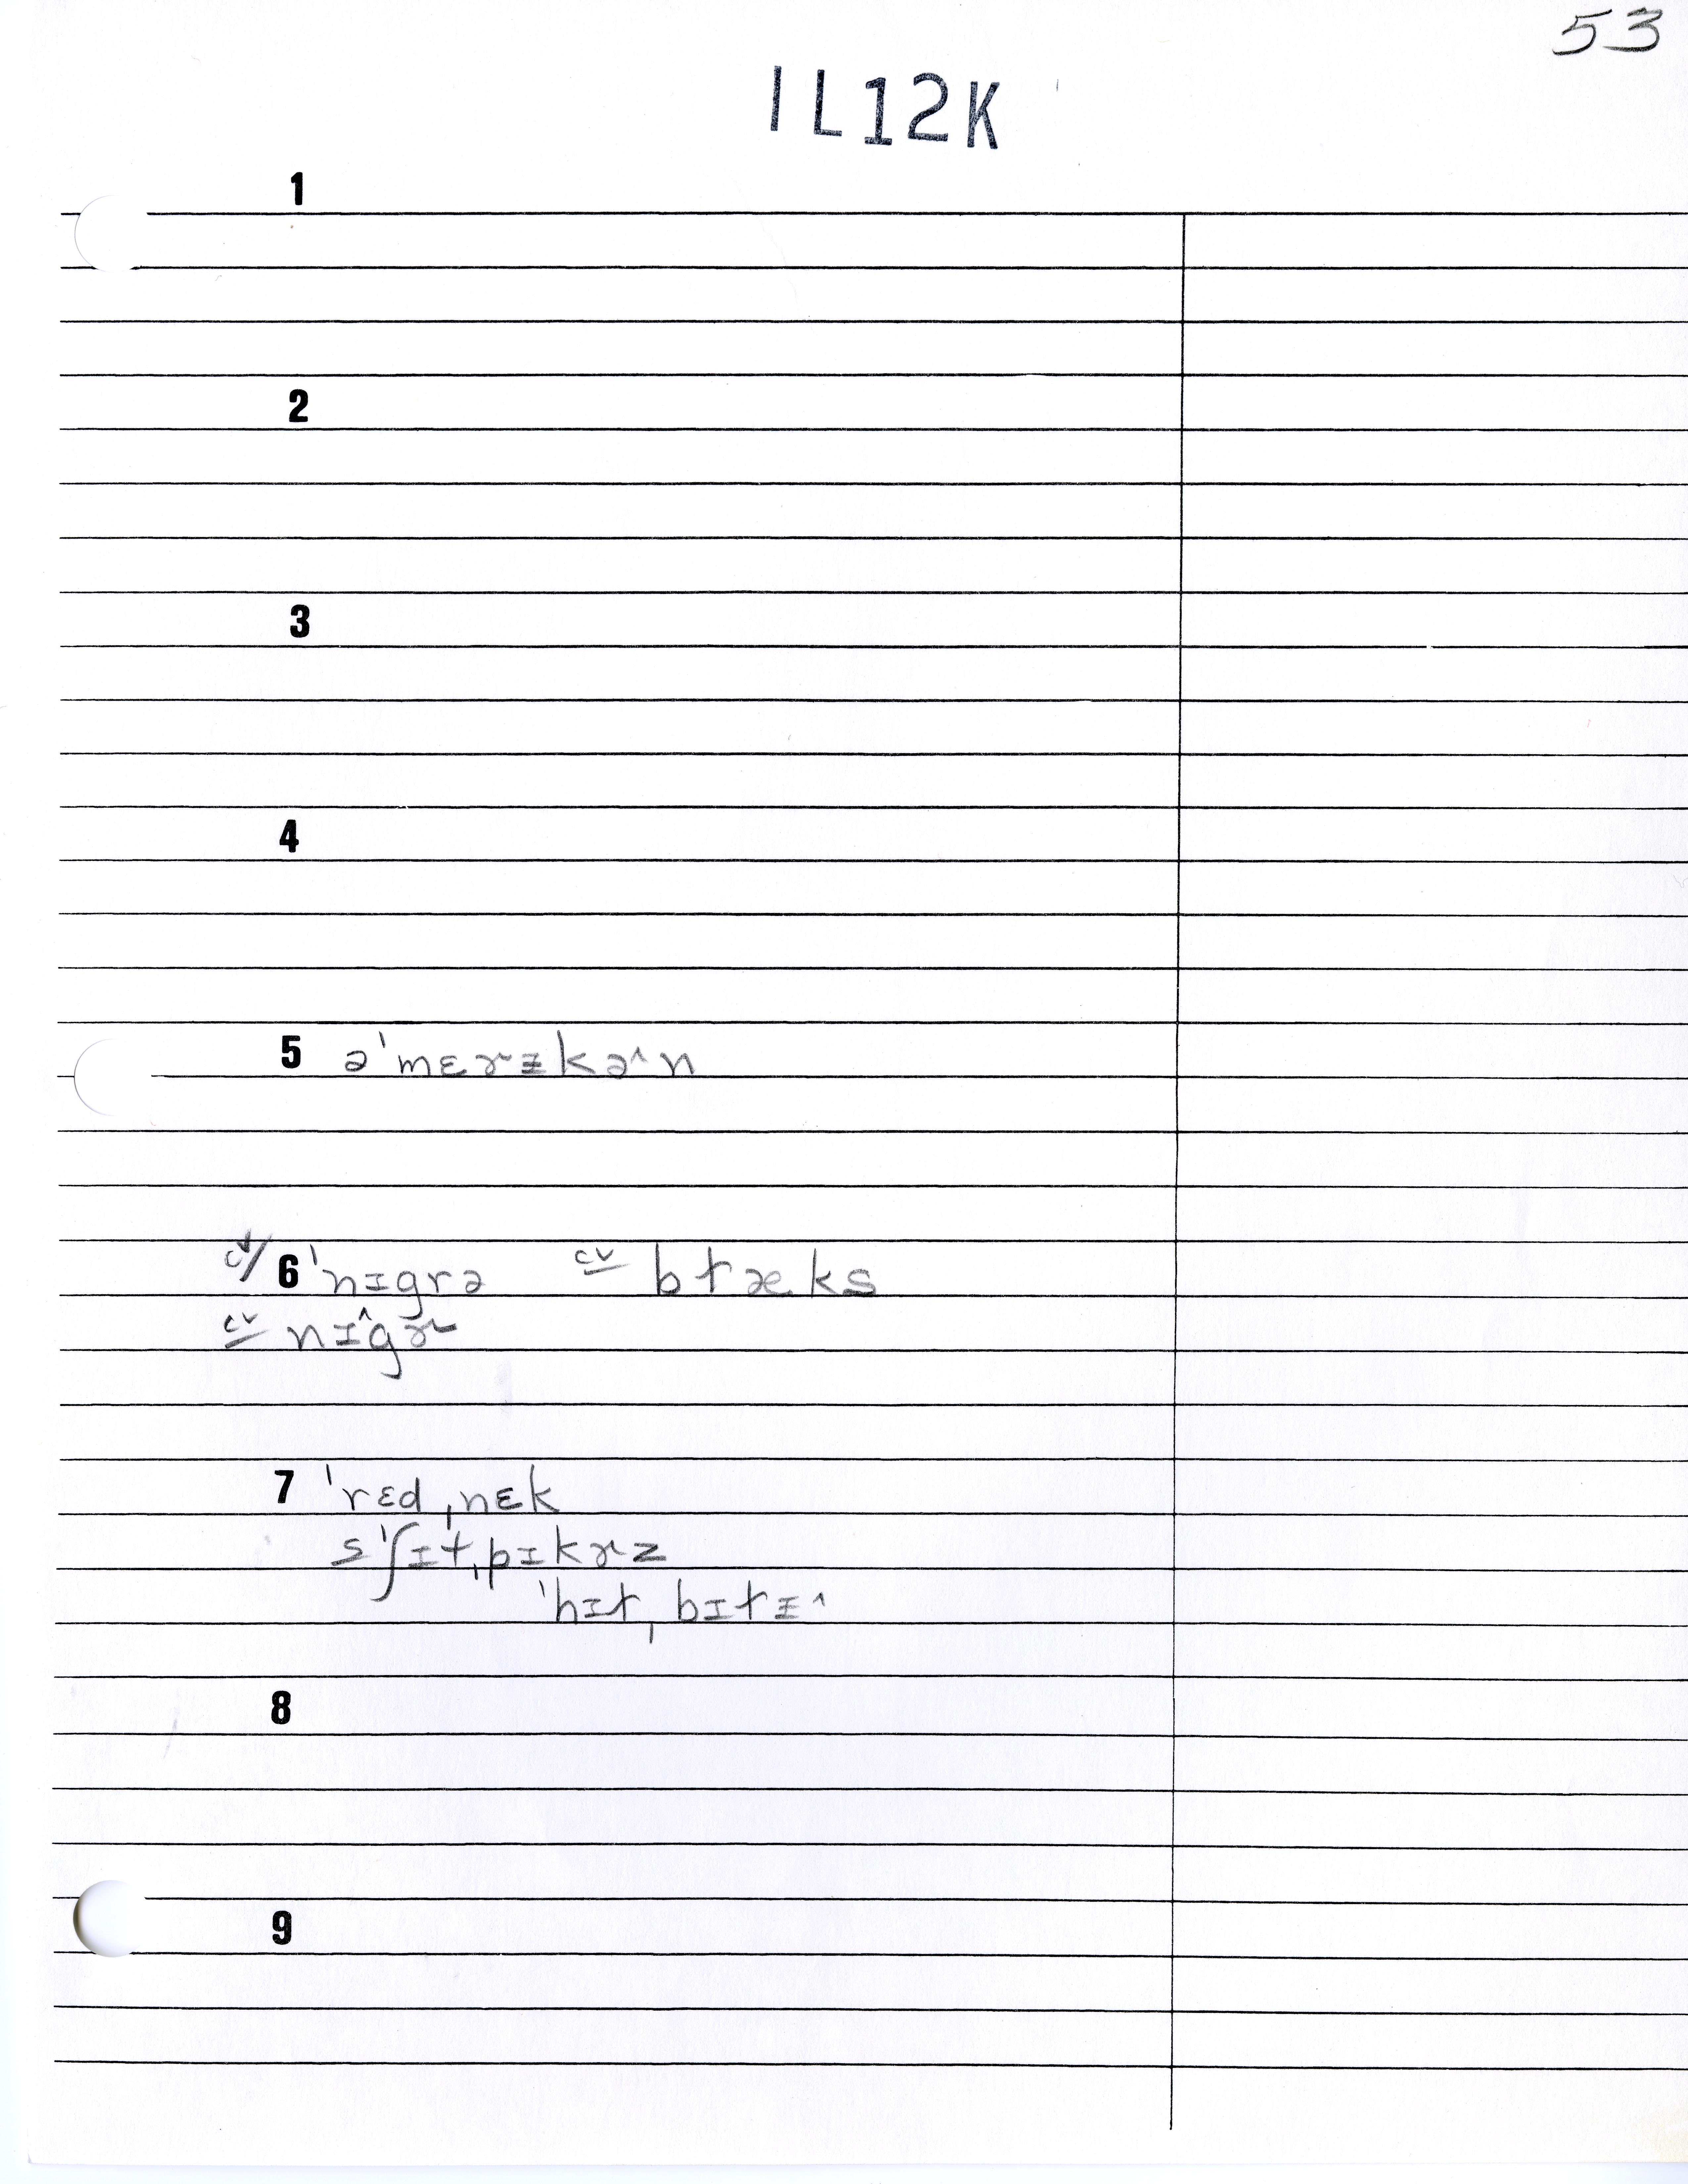 53
IL12K
1
2
3
4
5 əˈmɛɚɪ̵kə^n
cv/ 6 ˈnɪgrə cv bɫæks
cv nɪ^gɚ
7 ˈrɛdˌnɛk
sˈʃɪtˌpɪkɚz
ˈhɪɫˌbɪɫɪ̵^
8
9